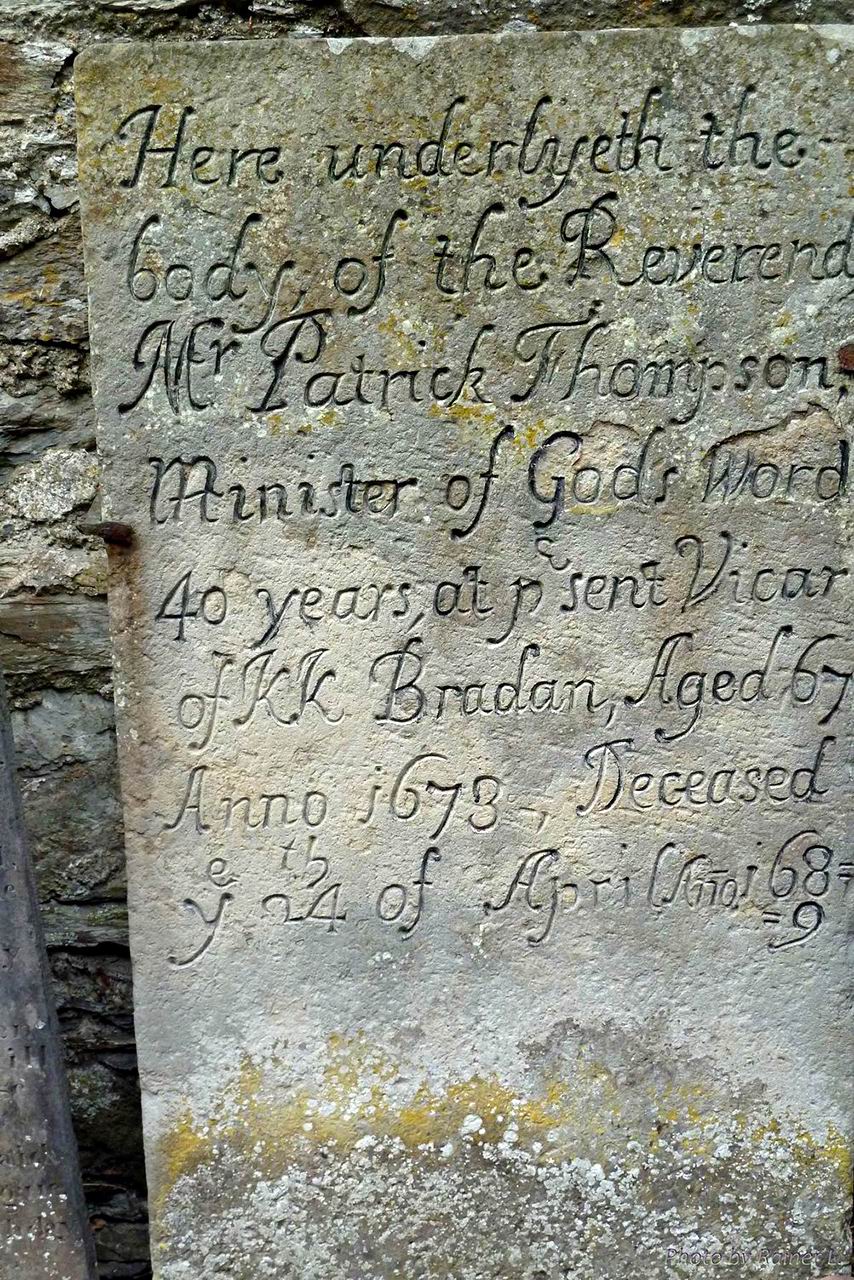 Here underlyeth the
body, of the Reverend
Mr Patrick Thompson,
Minister of Gods Word
40 years, at pᵉsent Vicar
of KK Bradan, Aged 67
Anno 1673, Deceased
yᵉ 24th of April Ano. 168=
=9
Photo by Rainer L.